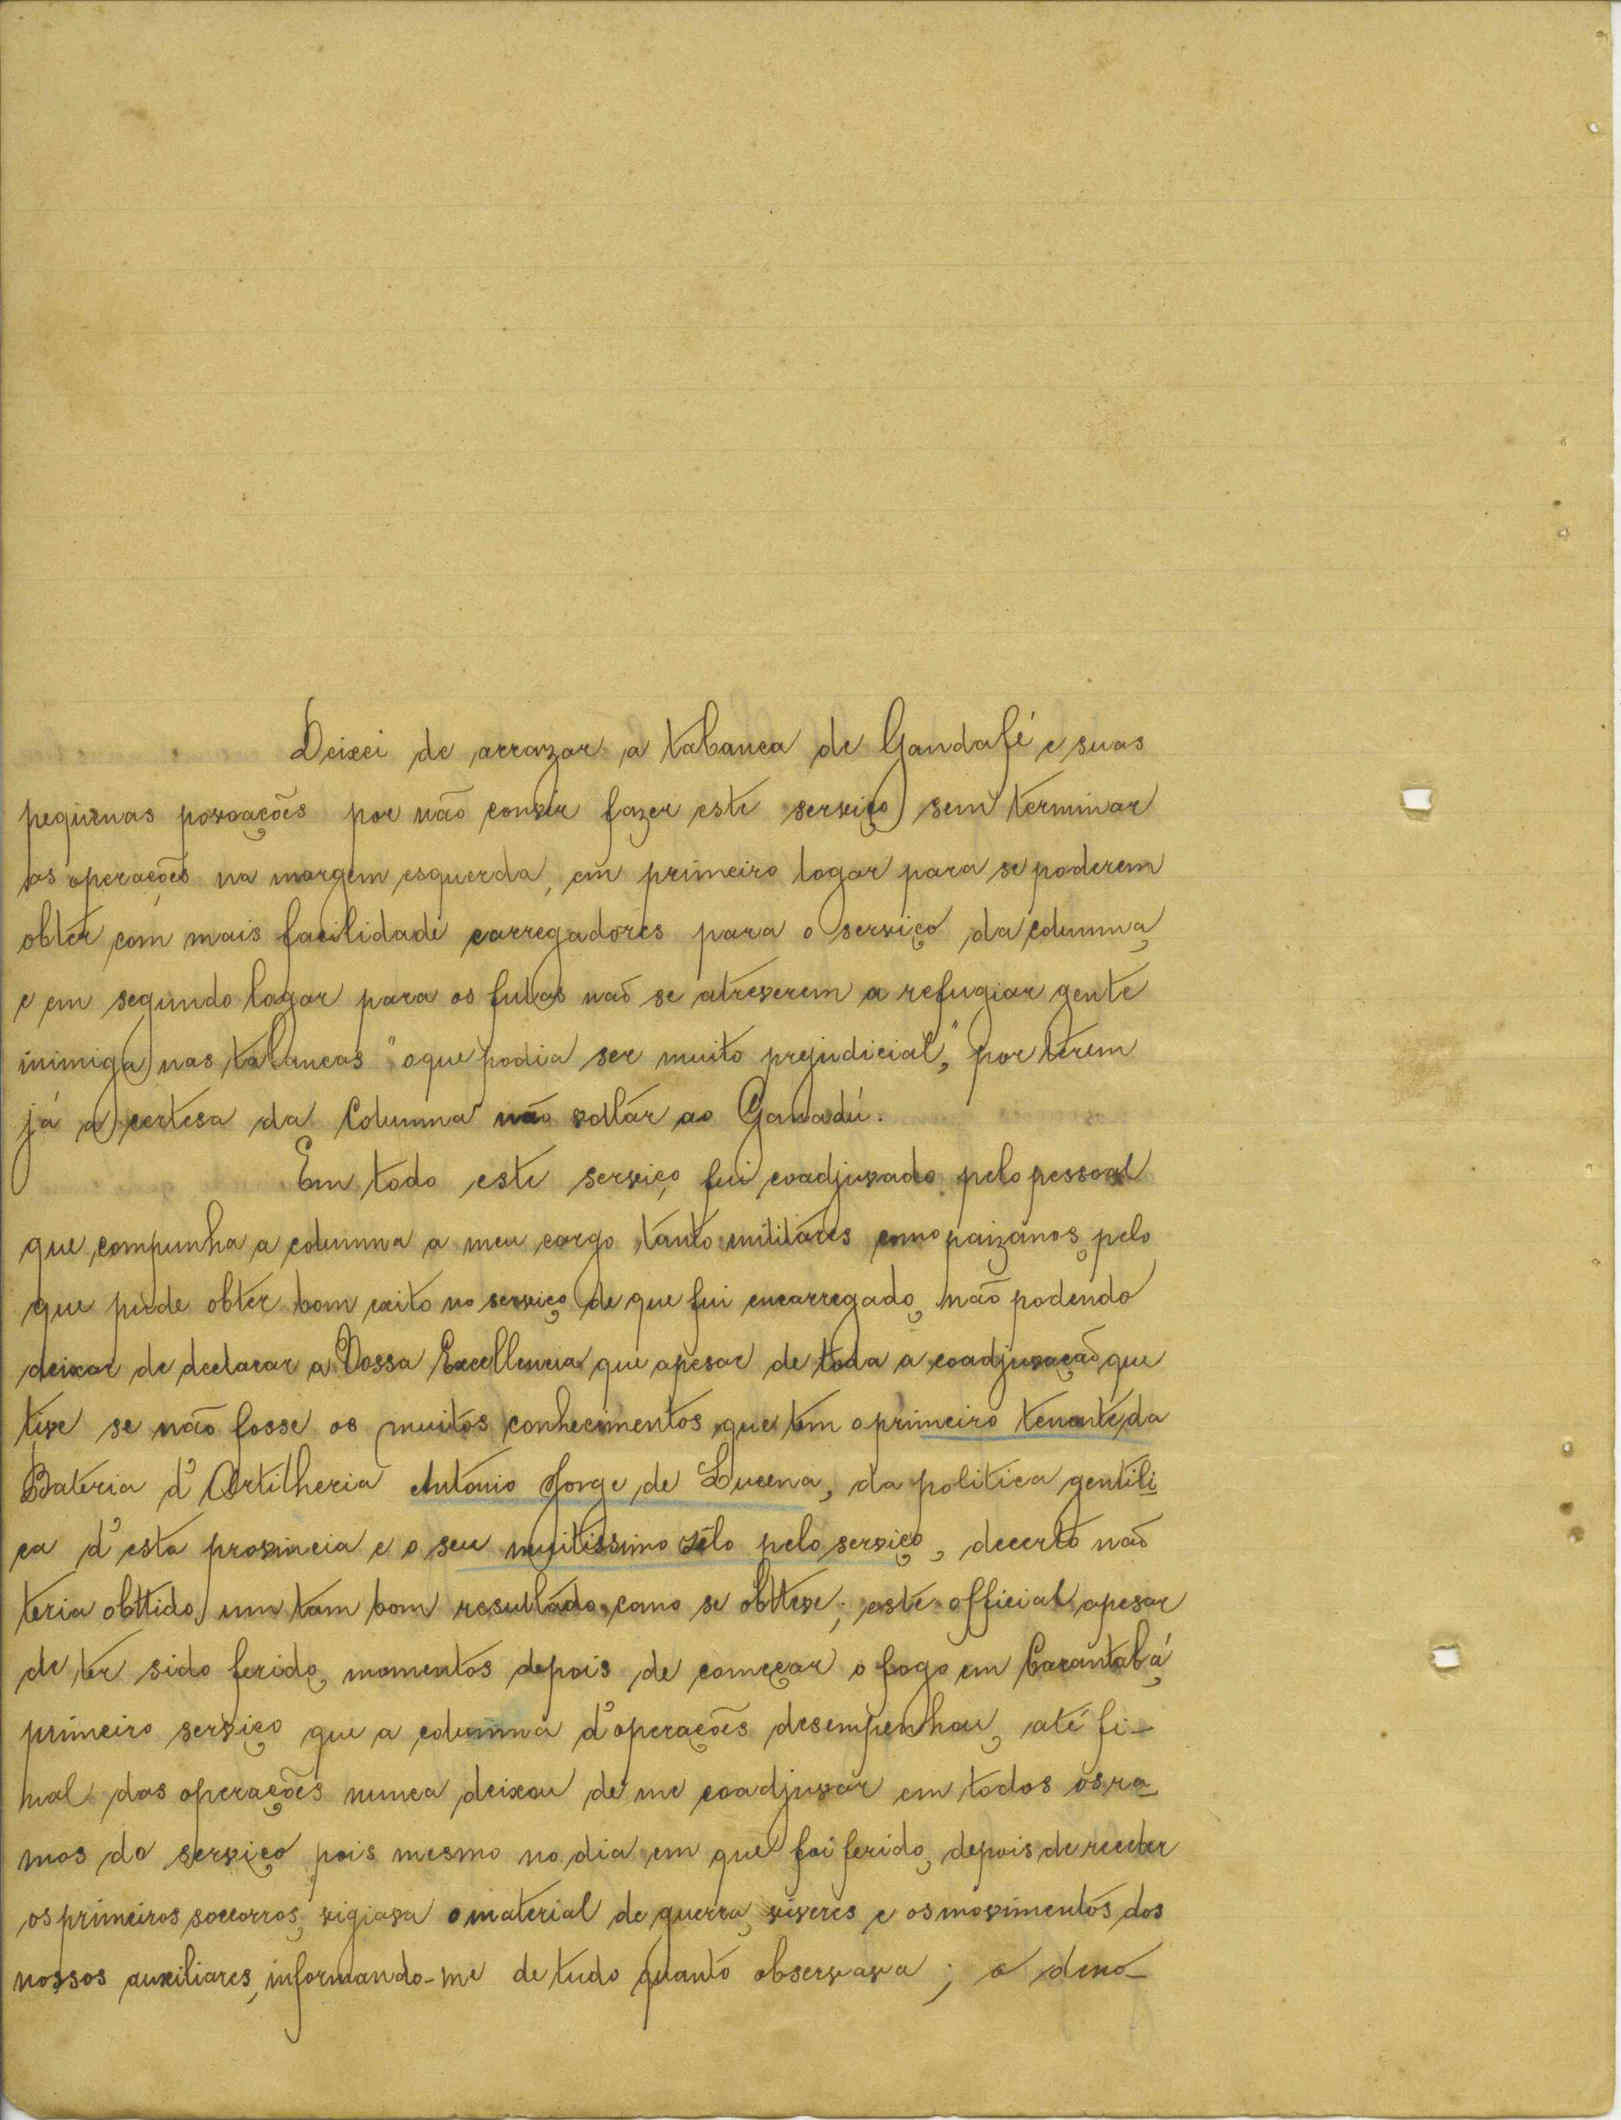 Deixei de arrazar a tabanca de Gandafé e suas
pequenas povoações por não convir fazer este serviço sem terminar
as operações na margem esquerda, em primeiro logar para se poderem
obter com mais facilidade carregadores para o serviço da columna,
e em segundo logar para os fulas não se atreverem a refugiar gente
inimiga nas tabancas "o que podia ser muito prejudicial," por terem
já a certesa da Columna não voltar ao Ganadú.
Em todo este serviço fui coadjuvado pelo pessoal
que compunha a columna a meu cargo tanto militares como paizanos, pelo
que pude obter bom exito no serviço de que fui encarregado, não podendo
deixar de declarar a Vossa Excellencia que apesar de toda a coadjuvação que
tive se não fosse os muitos conhecimentos que tem o primeiro tenente da
Bateria d'Artilheria Antonio Jorge de Lucena, da politica gentili
ca d'esta provincia e o seu muitissimo zêlo pelo serviço, decerto não
teria obttido um tam bom resultado como se obtteve; este official apesar
de ter sido ferido, momentos depois de começar o fogo em Carantabá,
primeiro serviço que a columna d'operações desempenhou, até fi-
nal das operações nunca deixou de me coadjuvar em todos os ra-
mos do serviço pois mesmo no dia em que foi ferido, depois de receber
os primeiros soccorros, vigiava o material de guerra, viveres e os movimentos dos
nossos auxiliares, informando-me de tudo quanto observava; o deno-